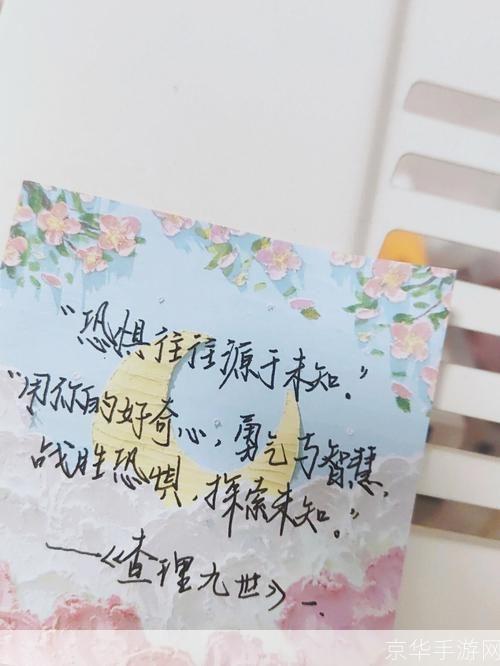 “恐惧往往源于未知。”
“用你的好奇心，勇气与智慧，
战胜恐惧，探索未知。”
——《查理九世》
京华手游网